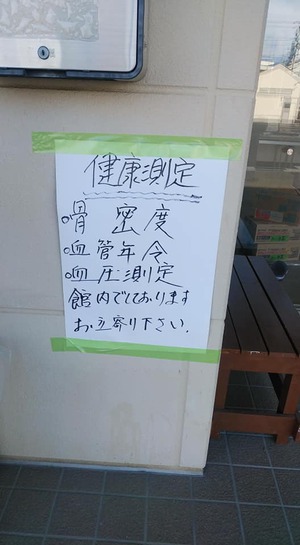 健康測定
○骨密度
○血管年令
○血圧測定
館内でしております
お立寄り下さい.